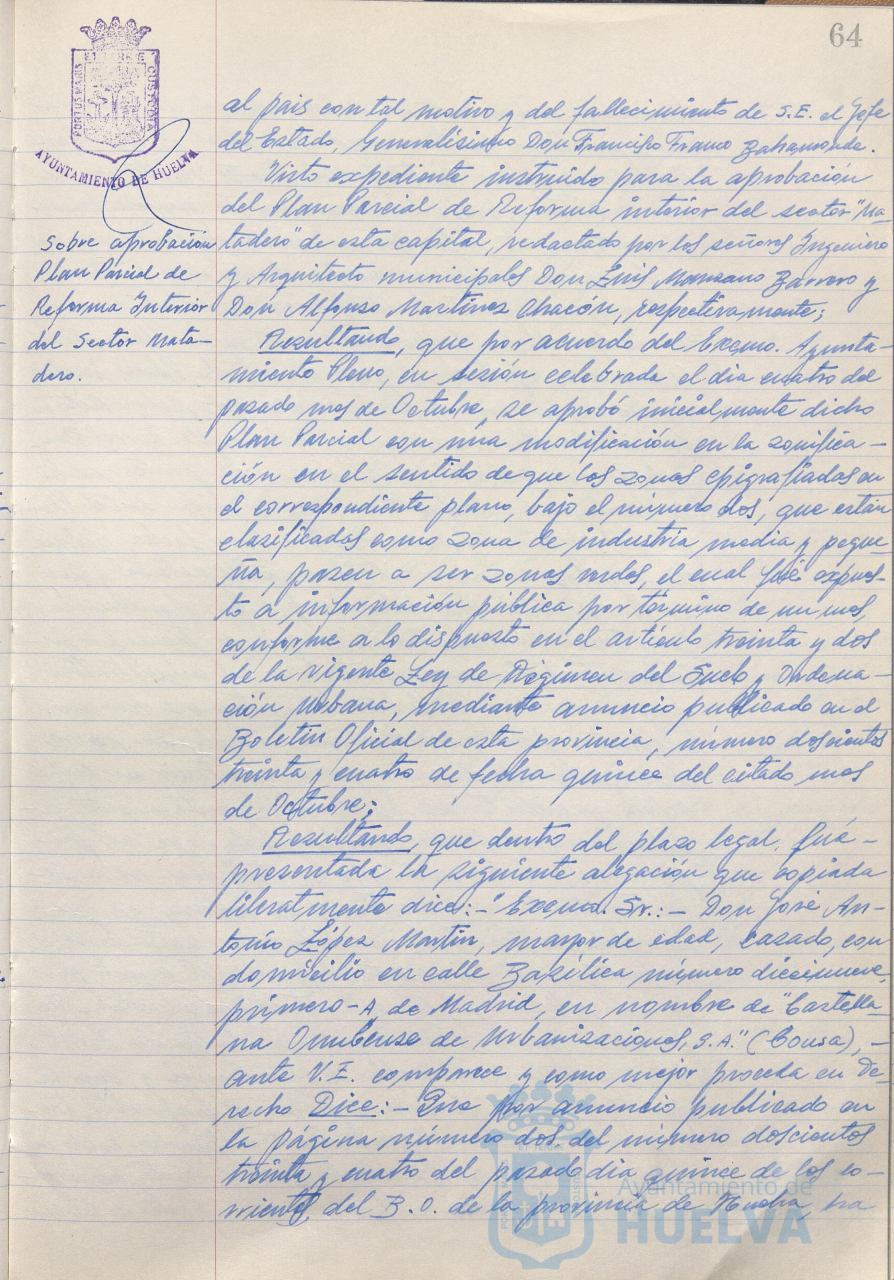 64
PORTUS MARIS ET TERRE CUSTODIA
AYUNTAMIENTO DE HUELVA
Sobre aprobación
Plan Parcial de
Reforma Interior
del Sector Mata-
dero.
al pais con tal motivo y del fallecimiento de S.E. el Jefe
del Estado, Generalísimo Don Francisco Franco Bahamonde.
Visto expediente instruido para la aprobación
del Plan Parcial de Reforma interior del sector "Ma-
tadero" de esta capital, redactado por los señores Ingeniero
y Arquitecto municipales Don Luis Manzano Barrero y
Don Alfonso Martínez Chacón, respectivamente;
Resultando, que por acuerdo del Excmo. Ayunta-
miento Pleno, en sesión celebrada el dia cuatro del
pasado mes de Octubre, se aprobó inicialmente dicho
Plan Parcial con una modificación en la zonifica-
ción en el sentido de que las zonas epigrafiadas en
el correspondiente plano, bajo el número dos, que están
clasificadas como zona de industria media y peque-
ña, pasen a ser zonas verdes, el cual fué expues-
to a información pública por término de un mes,
conforme a lo dispuesto en el artículo treinta y dos
de la vigente Ley de Régimen del Suelo y Ordena-
ción Urbana, mediante anuncio publicado en el
Boletin Oficial de esta provincia, número doscientos
treinta y cuatro de fecha quince del citado mes
de Octubre;
Resultando, que dentro del plazo legal, fué-
presentada la siguiente alegación que copiada
literalmente dice:-"Excmo. Sr.:- Don José An-
tonio López Martin, mayor de edad, casado, con
domicilio en calle Basílica número diecinueve,
primero-A, de Madrid, en nombre de "Castella-
na Onubense de Urbanizaciones, S.A." (Cousa), -
ante V.E. comparece y como mejor proceda en De-
recho Dice:- Que por anuncio publicado en
la página número dos del número doscientos
treinta y cuatro del pasado dia quince de los co-
rrientes, del B.O. de la provincia de Huelva, ha
Ayuntamiento de
HUELVA